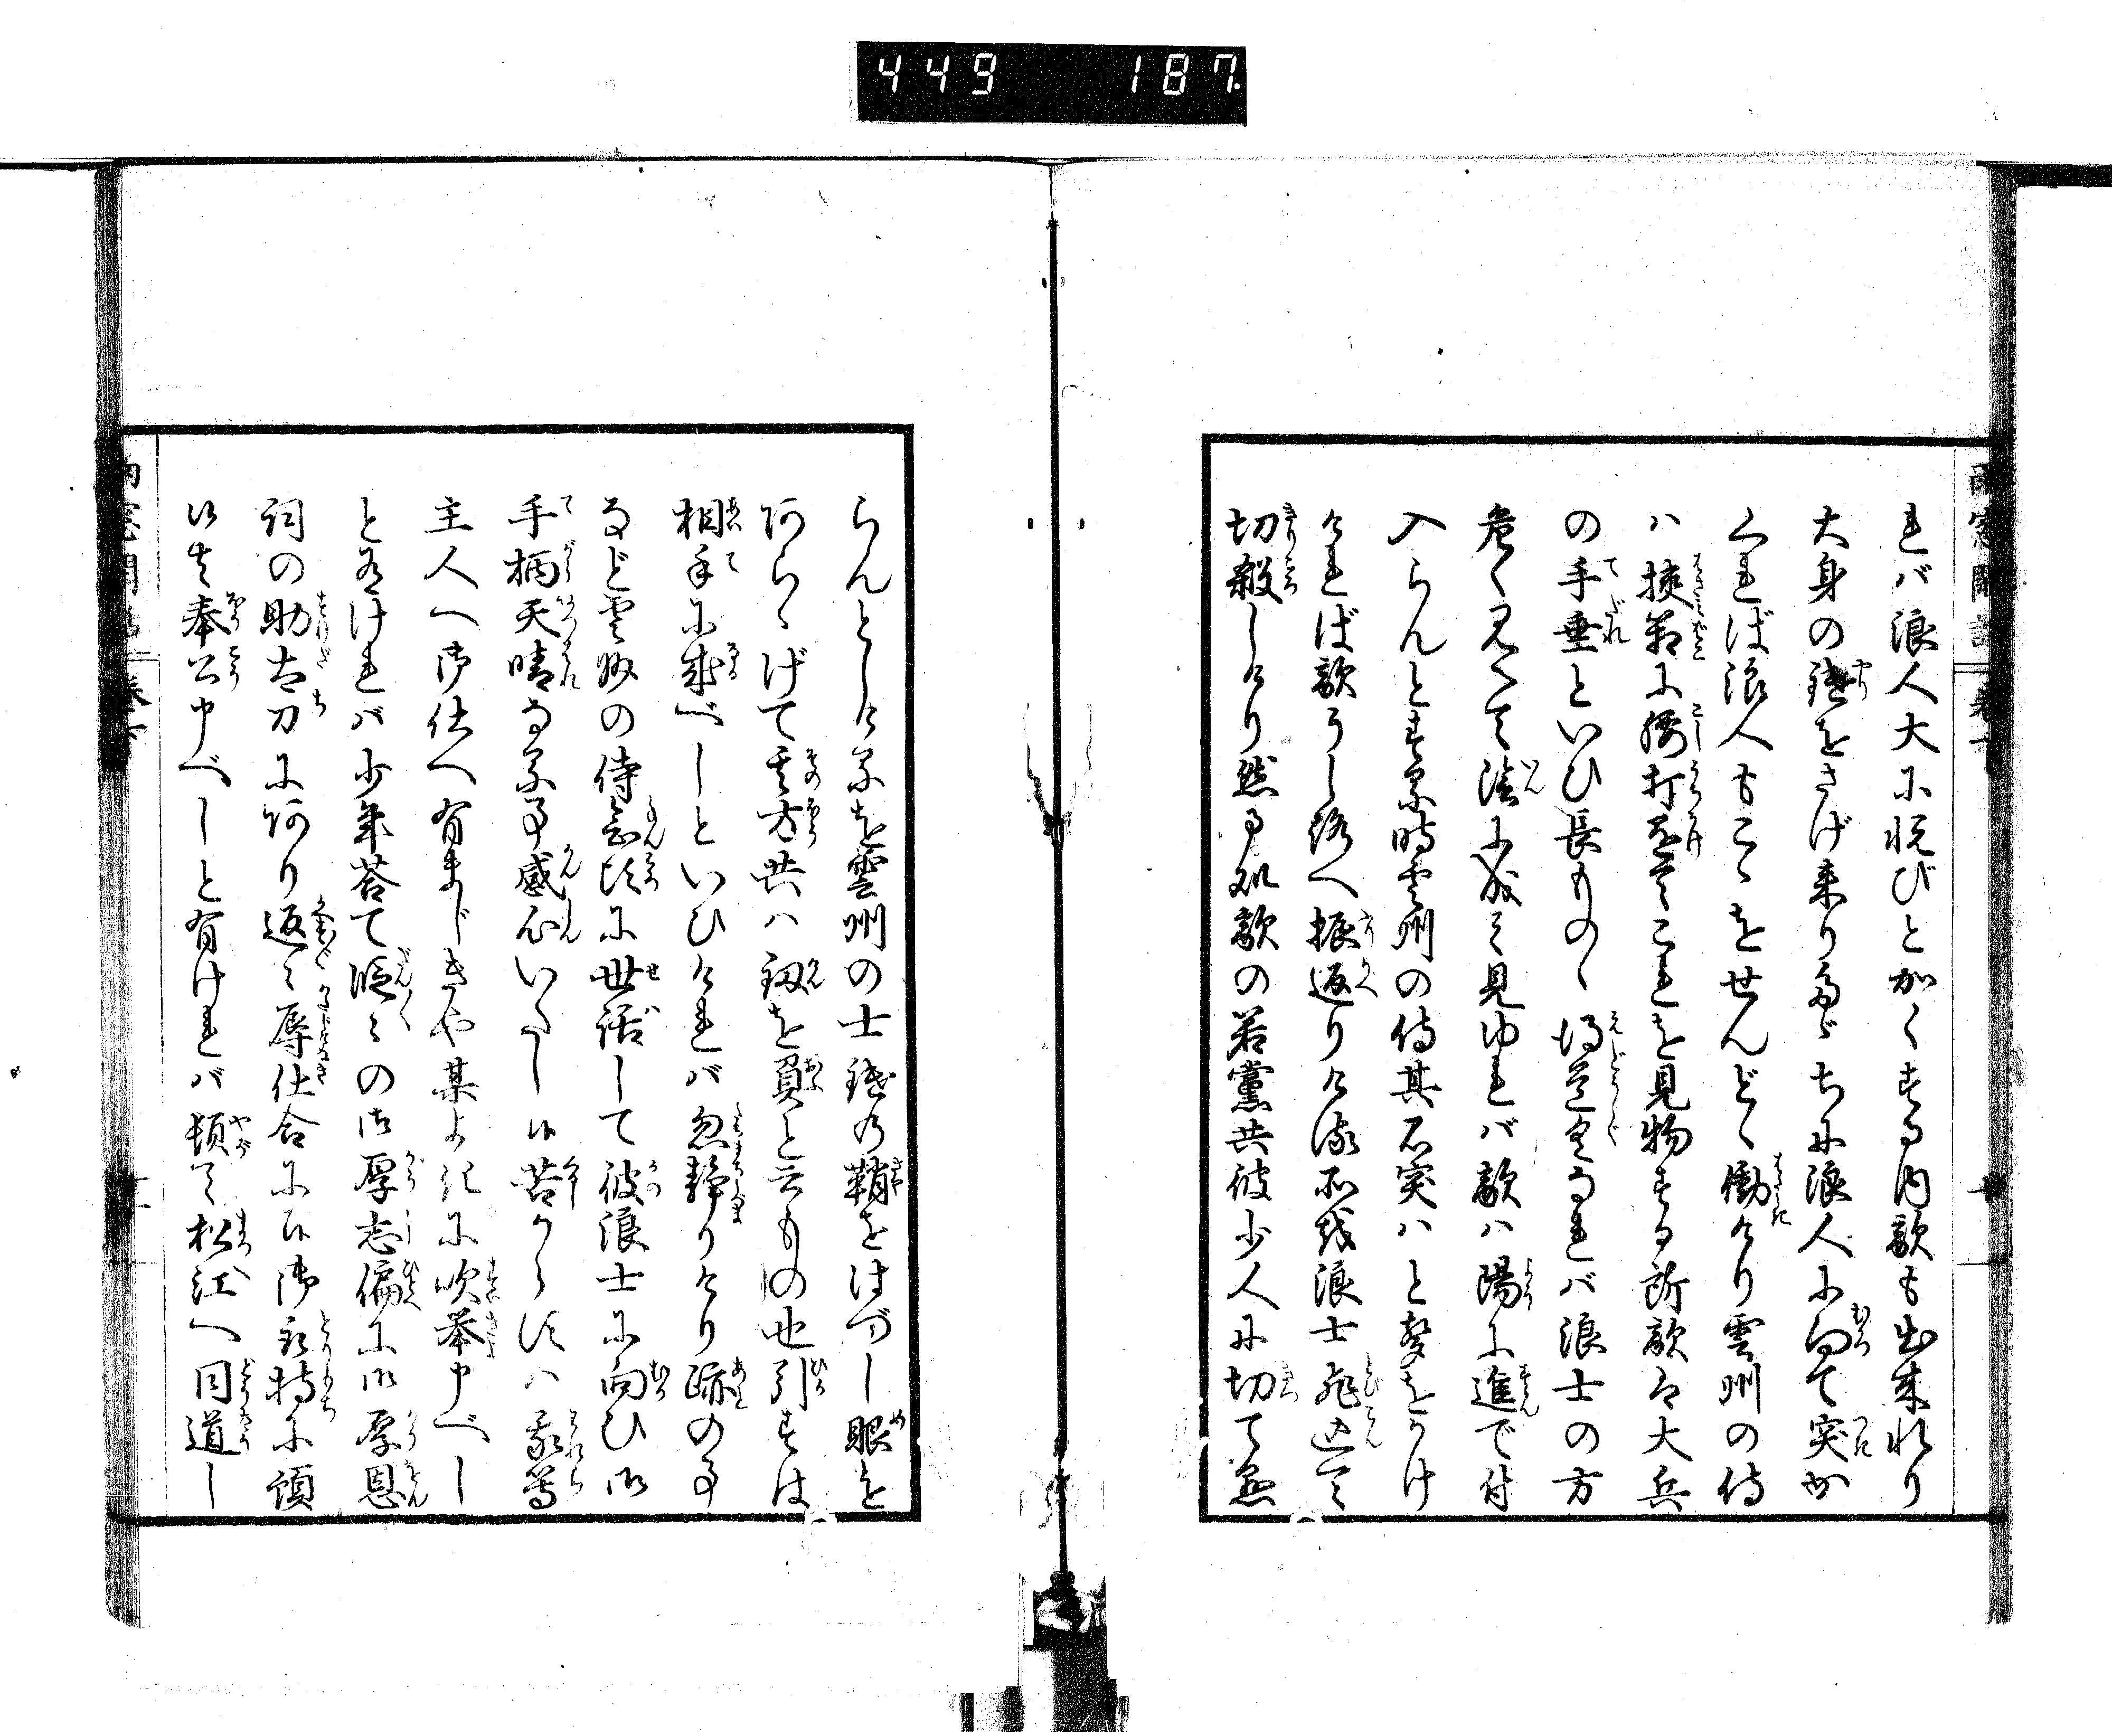 449 187
れバ浪人大に悦びとかくする内敵も出来れり
大身の鑓をさげ来りたゞちに浪人に向て突か
くれば浪人もこゝをせんどゝ働けり雲州の侍
ハ挟箱に腰打かけてこれを見物する所敵は大兵
の手垂といひ長ものゝ得道具なれバ浪士の方
危く見へて陰に成て見ゆれバ敵ハ陽に進で付
入らんとする時雲州の侍其石突ハと声をかけ
ければ敵うしろへ振返りける所を浪士飛込て
切殺しけり然る処敵の若党共彼少人に切て懸
らんとしけるを雲州の士鑓の鞘をはづし眼を
いらゝげて其方共ハ釼を負と云もの也引ずは
相手に成べしといひけれバ忽静りけり跡の事
など雲州の侍念頃に世話して彼浪士に向ひ御
手柄天晴なる事感心いたし候苦しからずハ我等
主人へ御仕へ有まじきや某よろしきに吹挙申べし
と有けれバ少年答て段々の御厚志偏に御厚恩
詞の助太刀にあづかり返々辱仕合に候御取持に預
候はゞ奉公申べしと有けれバ頓て松江へ同道し